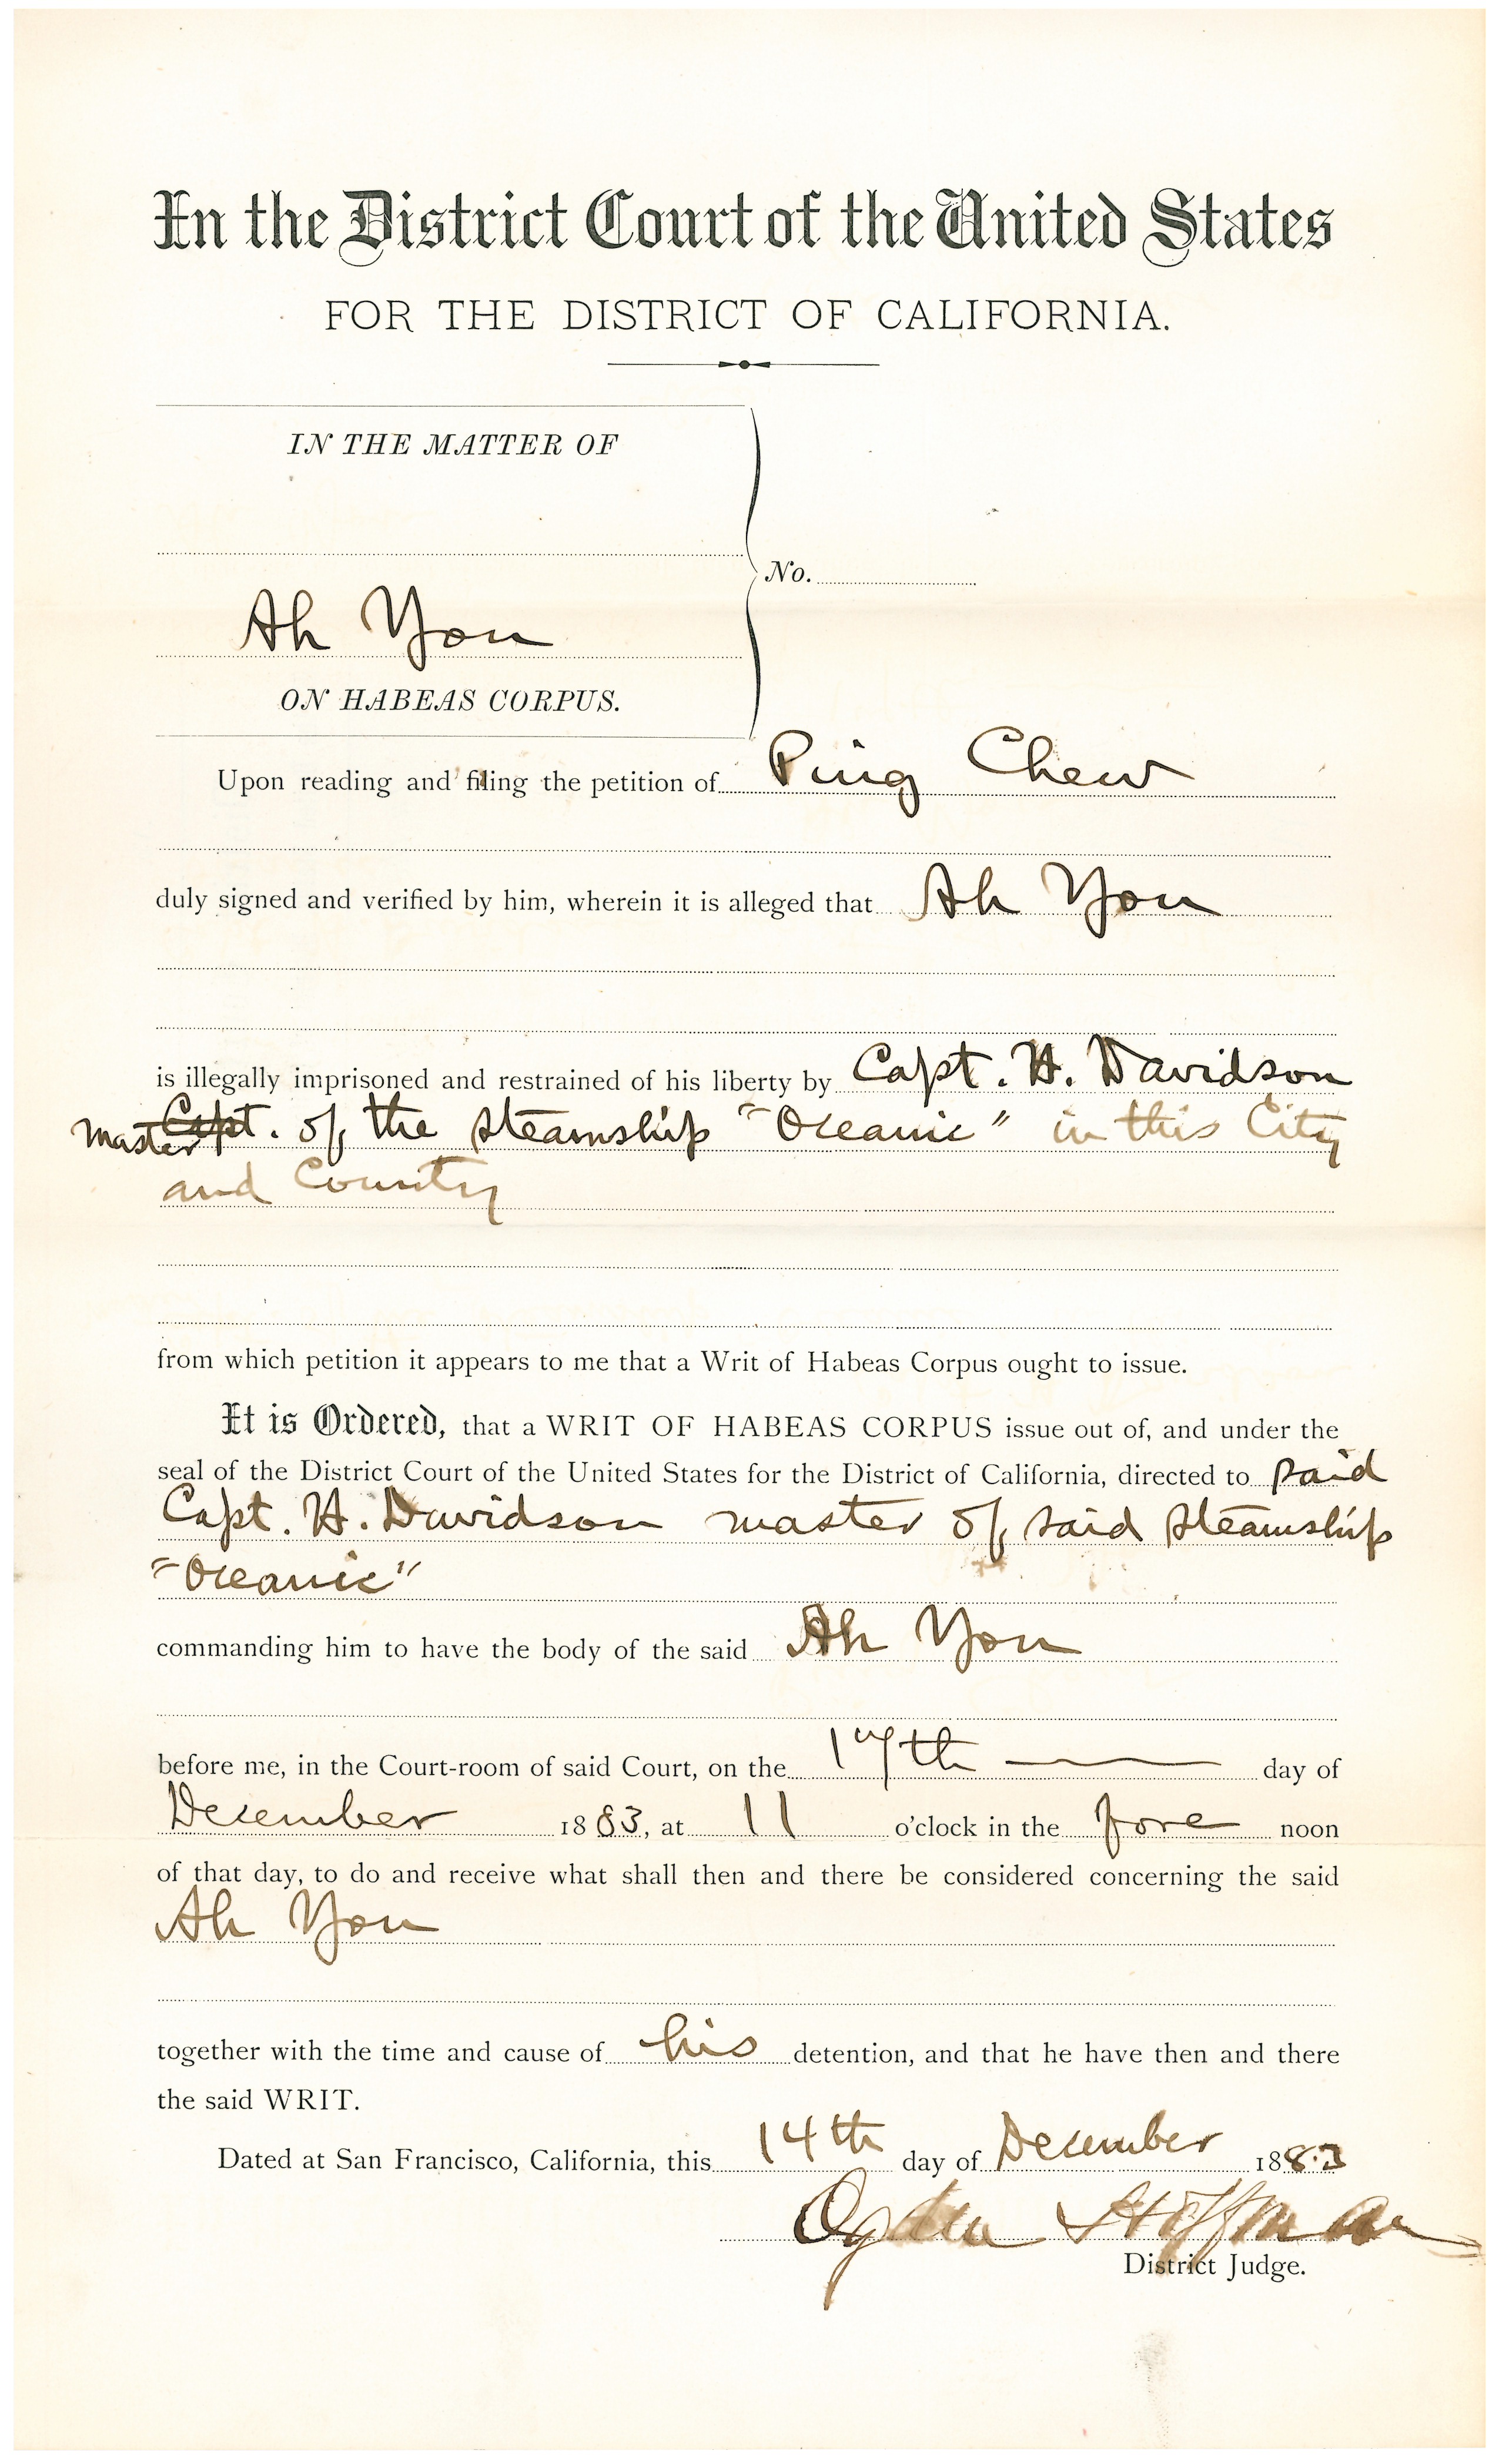 In the District Court of the United States
FOR THE DISTRICT OF CALIFORNIA.
IN THE MATTER OF
No.
Ah You
ON HABEAS CORPUS.
Upon reading and filing the petition of Ping Chew
duly signed and verified by him, wherein it is alleged that Ah You
is illegally imprisoned and restrained of his liberty by Capt. H. Davidson
master Capt. of the steamship "Oceanic" in this City
and County
from which petition it appears to me that a Writ of Habeas Corpus ought to issue.
It is Ordered, that a WRIT OF HABEAS CORPUS issue out of, and under the
seal of the District Court of the United States for the District of California, directed to said
Capt. H. Davidson master of said steamship
"Oceanic"
commanding him to have the body of the said Ah You
before me, in the Court-room of said Court, on the 17th day of
December 1883, at 11 o'clock in the fore noon
of that day, to do and receive what shall then and there be considered concerning the said
Ah You
together with the time and cause of his detention, and that he have then and there
the said WRIT.
Dated at San Francisco, California, this 14th day of December 1883
Ogden Hoffman
District Judge.